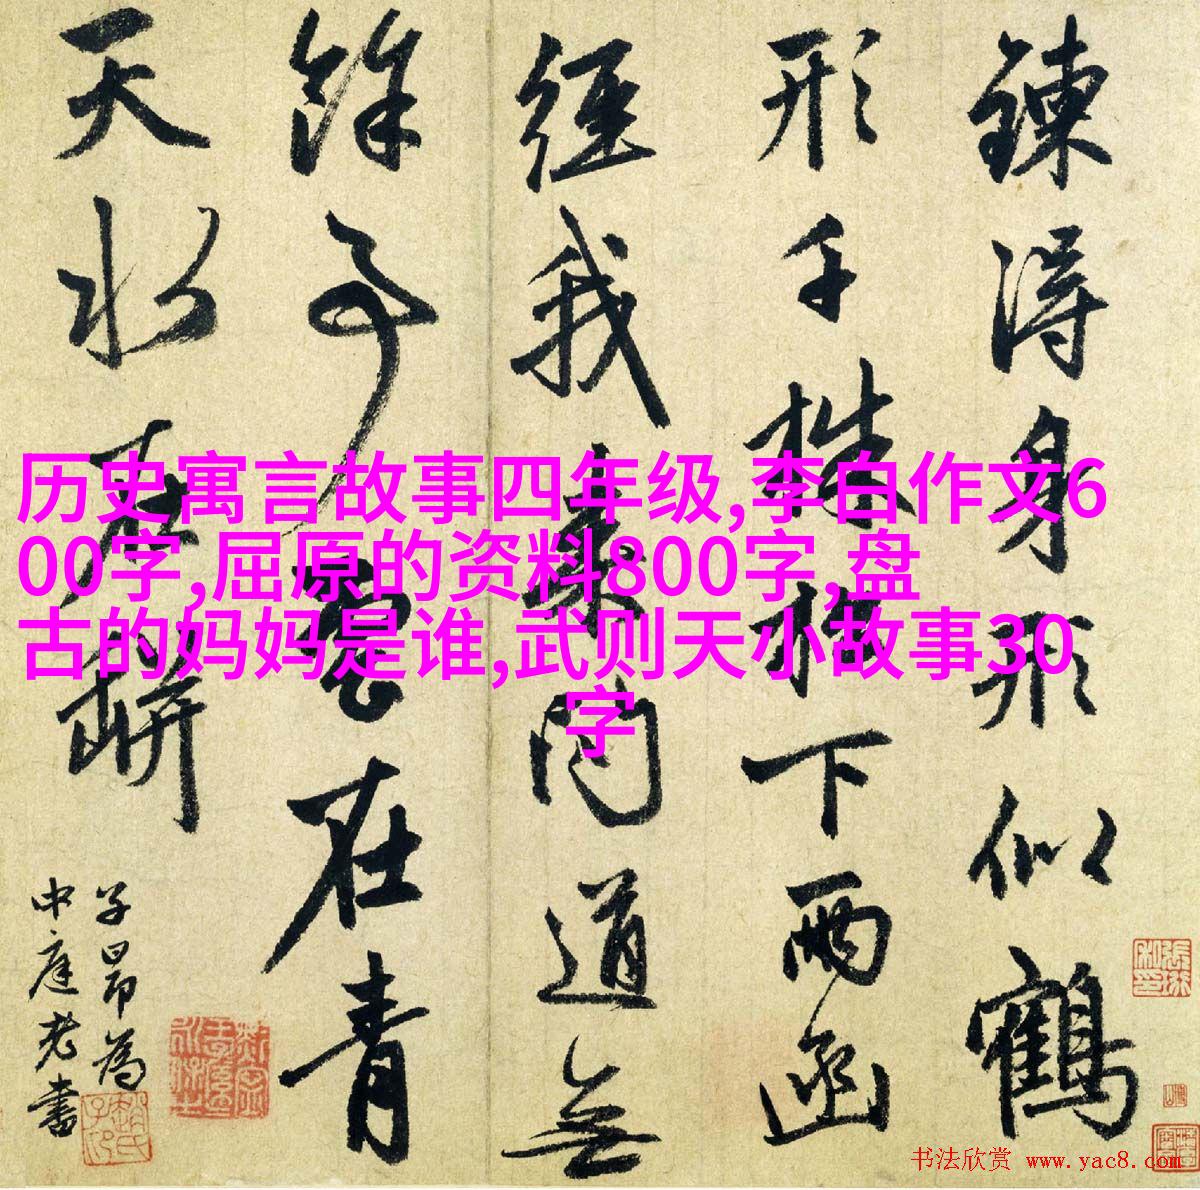 鍊得身形似鶴
形千株松下兩函
經我來問道無
餘事雲在青
天水在缾
子昂為
中庭老書
历史寓言故事四年级,李白作文6
00字,屈原的资料800字,盘
古的妈妈是谁,武则天小故事30
字
书法欣赏 www.yac8.com